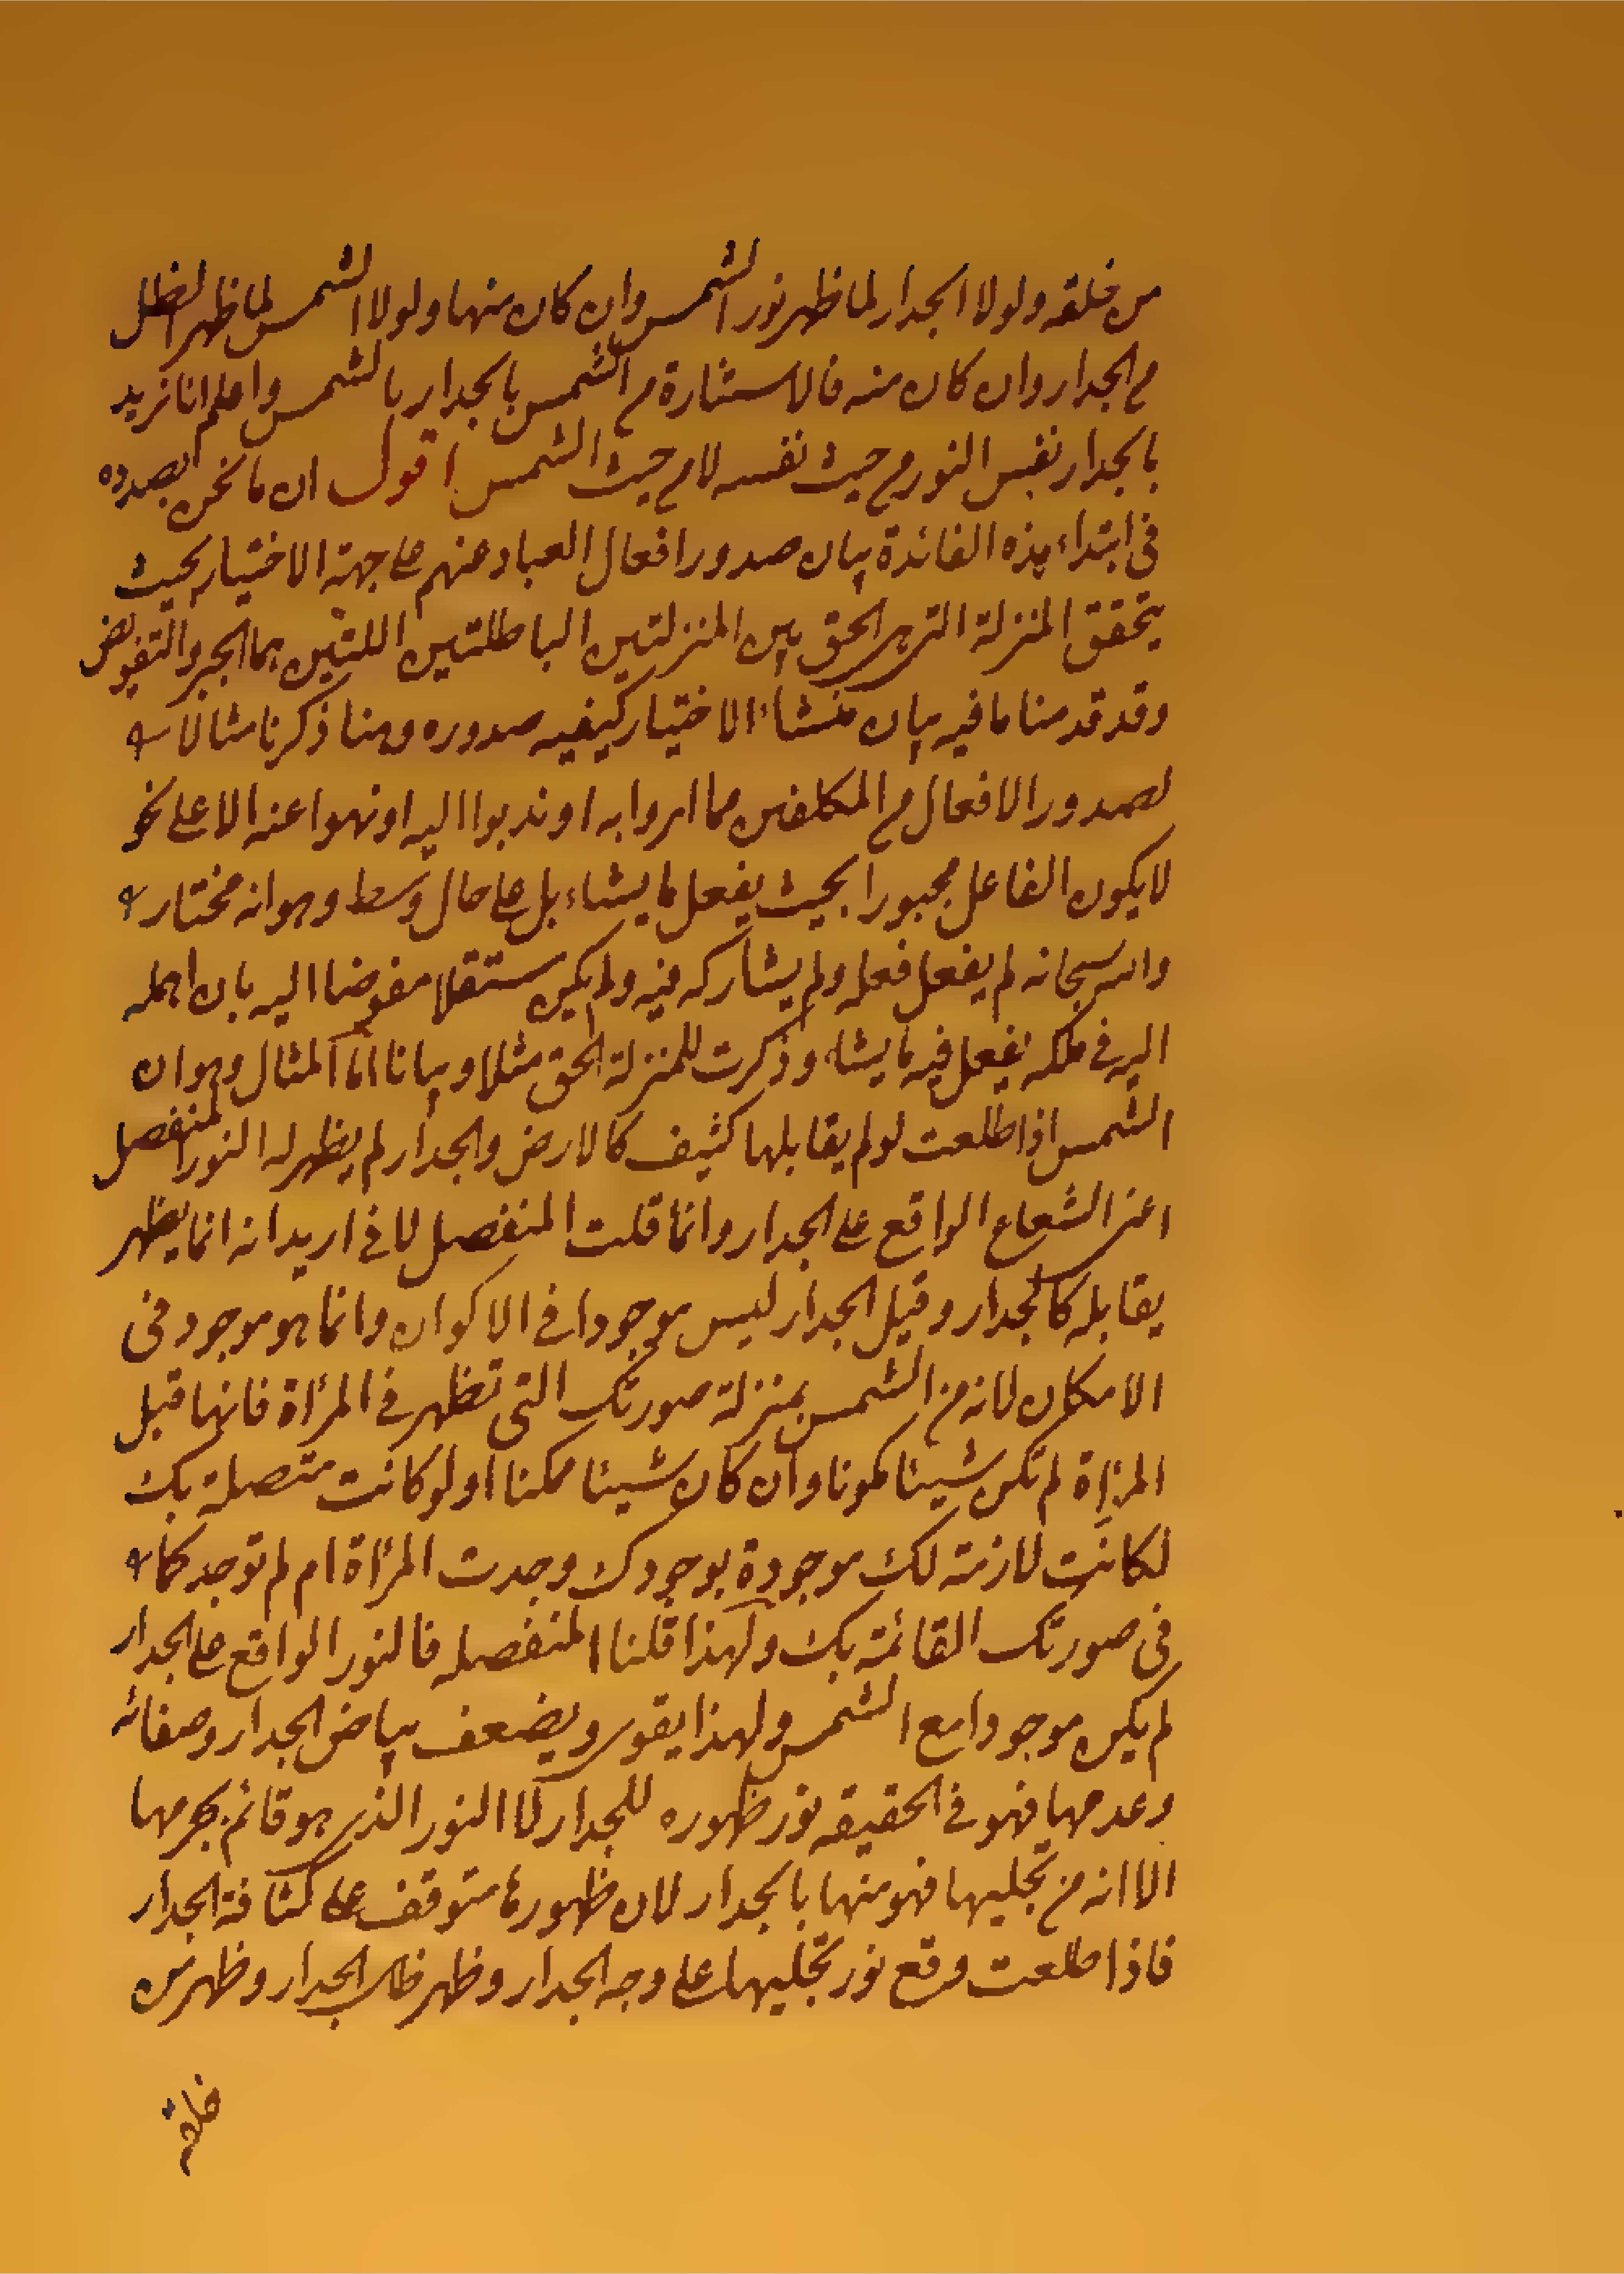 من خلقه ولولا الجدار لما ظهر نور الشمس وان كان منها ولولا الشمس لما ظهر الظل
من الجدار وان كان منه فالاستنارة من الشمس بالجدار بالشمس واعلم انا نريد
بالجدار نفس النور من حيث نفسه لا من حيث الشمس اقول ان ما نحن بصدده
فى ابتداء هذه الفائدة بيان صدور افعال العباد عنهم على جهة الاختيار بحيث
يتحقق المنزلة التى هى الحق بين المنزلتين الباطلتين اللتين هما الجبر والتفويض
وقد قدمنا ما فيه بيان منشاء الاختيار كيفيه صدوره وهنا ذكرنا مثالا
لصدور الافعال من المكلفين مما امروا به او ندبوا اليه او نهوا عنه الا على نحو
لا يكون الفاعل مجبورا بحيث يفعل ما يشاء بل على حال وسط وهو انه مختار
والله سبحانه لم يفعل فعله ولم يشاركه فيه ولم يكن مستقلا مفوضا اليه بان اهمله
الله فى ملكه يفعل فيه ما يشاء وذكرت للمنزلة الحق مثلا وبيانا اما المثال وهو ان
الشمس اذا طلعت لو لم يقابلها كثيف كالارض والجدار لم يظهر له النور المنفصل
اعنى الشعاع الواقع على الجدار وانما قلت المنفصل لانى اريد انه انما يظهر
يقابله كالجدار وقبل الجدار ليس موجودا فى الاكوان وانما هو موجود فى
الامكان لانه من الشمس بمنزلة صورتك التى تظهر فى المرأة فانها قبل
المرأة لم تكن شيئا مكونا وان كان شيئا ممكنا اولو كانت متصلة بك
لكانت لازمة لك موجودة بوجودك وجدت المرأة ام لم توجد كما
فى صورتك القائمة بك ولهذا قلنا المنفصله فالنور الواقع على الجدار
لم يكن موجودا مع الشمس ولهذا يقوى ويضعف ببياض الجدار وصفائه
وعدمها فهو فى الحقيقه نور ظهوره للجدار لا النور الذى هو قائم بجرمها
الا انه من تجليها فهو منها بالجدار لان ظهورها متوقف على كثافة الجدار
فاذا طلعت وقع نور تجليها على وجه الجدار وظهر ظل الجدار وظهر من
خلفه